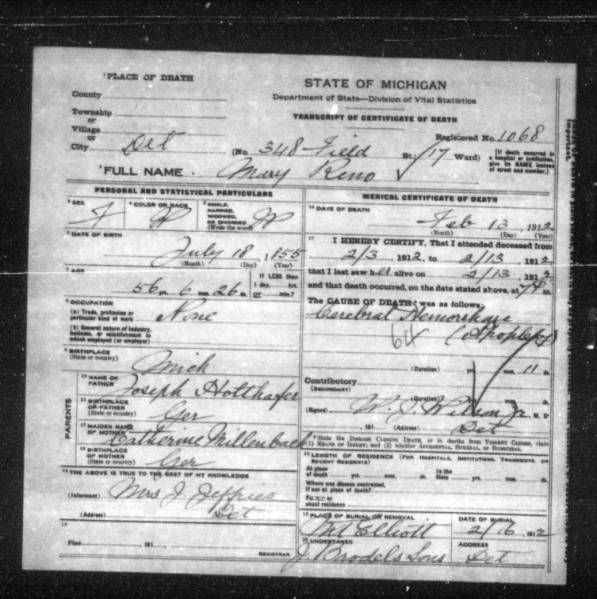 ¹PLACE OF DEATH
County
Township
or
Village
or
City Det (No. 348 Field St. 17 Ward)
STATE OF MICHIGAN
Department of State—Division of Vital Statistics
TRANSCRIPT OF CERTIFICATE OF DEATH
Registered No. 1068
[If death occurred in a hospital or institution, give its NAME instead of street and number.]
²FULL NAME Mary Reno
PERSONAL AND STATISTICAL PARTICULARS
³ SEX F
⁴ COLOR OR RACE W
⁵ SINGLE, MARRIED, WIDOWED, OR DIVORCED (Write the word) W
⁶ DATE OF BIRTH
July 18, 1855
(Month) (Day) (Year)
⁷ AGE
56 yrs. 6 mos. 26 ds.
If LESS than 1 day, hrs. or min.?
⁸ OCCUPATION
(a) Trade, profession or particular kind of work None
(b) General nature of industry, business, or establishment in which employed (or employer)
⁹ BIRTHPLACE
(State or country) Mich
PARENTS
¹⁰ NAME OF FATHER Joseph Holthafer
¹¹ BIRTHPLACE OF FATHER
(State or country) Ger
¹² MAIDEN NAME OF MOTHER Catherine Millenbach
¹³ BIRTHPLACE OF MOTHER
(State or country) Ger
¹⁴ THE ABOVE IS TRUE TO THE BEST OF MY KNOWLEDGE
(Informant) Mrs J. Jeffries
(Address) Det
¹⁵
Filed 191
REGISTRAR
MEDICAL CERTIFICATE OF DEATH
¹⁶ DATE OF DEATH
Feb 13, 1912
(Month) (Day) (Year)
¹⁷ I HEREBY CERTIFY, That I attended deceased from
2/3, 1912, to 2/13, 1912
that I last saw her alive on 2/13, 1912
and that death occurred, on the date stated above, at m.
The CAUSE OF DEATH was as follows:
Cerebral Hemorrhage
64 (Apoplexy)
(Duration) yrs. mos. 11 ds.
Contributory
(SECONDARY)
(Duration) yrs. mos. ds.
(Signed) W. J. Wilson Jr., M. D.
, 191 (Address) Det
* State the DISEASE CAUSING DEATH, or in deaths from VIOLENT CAUSES, state (1) MEANS OF INJURY; and (2) whether ACCIDENTAL, SUICIDAL, or HOMICIDAL.
¹⁸ LENGTH OF RESIDENCE (FOR HOSPITALS, INSTITUTIONS, TRANSIENTS, OR RECENT RESIDENTS)
At place of death yrs. mos. ds. In the State yrs. mos. ds.
Where was disease contracted, if not at place of death?
Former or usual residence
¹⁹ PLACE OF BURIAL OR REMOVAL
Mt Elliott
DATE OF BURIAL
2/16, 1912
²⁰ UNDERTAKER
J. Brodels Sons
ADDRESS
Det